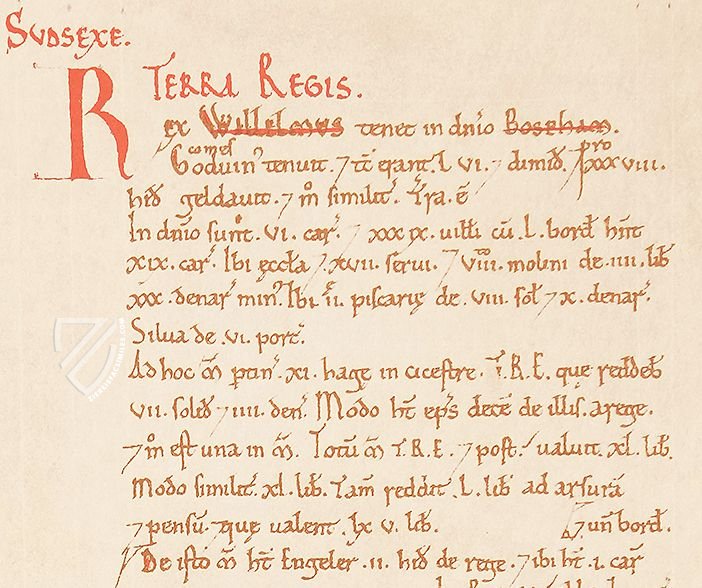 SUDSEXE.
TERRA REGIS.
Rex Willelmus tenet in dn̄io Boseham.
comes pro
Goduin' tenuit. ⁊ tc̄ erant. L VI. ⁊ dimid'. xxx viii.
hid' geldauit. ⁊ m̊ similit'. T'ra. ē
In dn̄io sunt. vi. car'. ⁊ xxx ix. uilli cū. L. bord' hn̄t
xix. car'. Ibi ęccła ⁊. xvii. serui. ⁊ viii. molini de. iiii. lib'
xxx. denar' min'. Ibi. ii. piscarię de. viii. sol' ⁊ x. denar'.
Silua de. vi. porc'.
Ad hoc m̄ ptin'. xi. hagę in cicestre. T.R.E. que reddeb'
vii. solid' ⁊ iiii. den'. Modo ht̄ ep̄s decē de illis. a rege.
⁊ m̊ est una in m̄. Totū m̄ T.R.E. ⁊ post. ualuit. xl. lib'.
Modo similit'. xl. lib'. Tam̄ reddit. L. lib' ad arsurā
⁊ pensū. quę ualent. lx v. lib'. ⁊ un' bord'.
De isto m̄ ht̄ Engeler. ii. hid' de rege. ⁊ ibi ht̄. i. car'